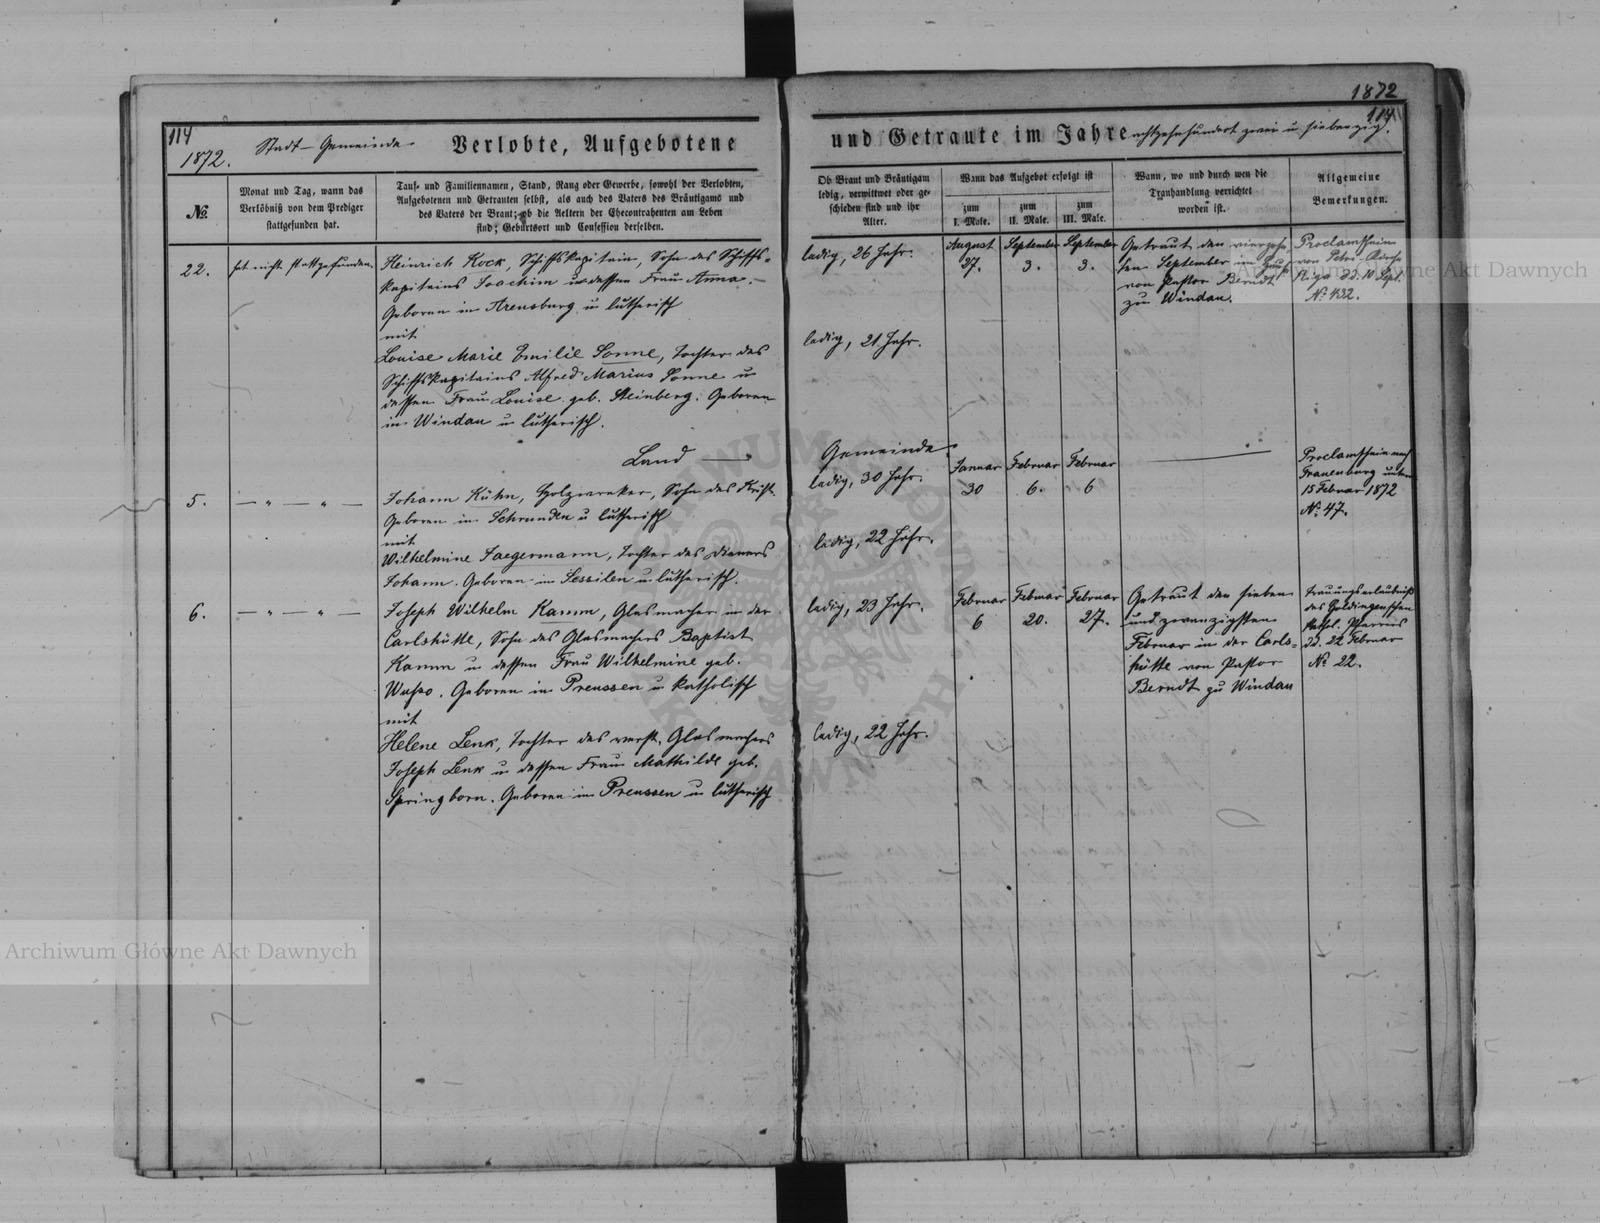 1872
114
114
1872.
Stadt - Gemeinde
Verlobte, Aufgebotene
und Getraute im Jahre achtzehnhundert zwei u. siebenzig.
№
Monat und Tag, wann das
Verlöbniß von dem Prediger
stattgefunden hat.
Tauf- und Familiennamen, Stand, Rang oder Gewerbe, sowohl der Verlobten,
Aufgebotenen und Getrauten selbst, als auch des Vaters des Bräutigams und
des Vaters der Braut; ob die Aeltern der Ehecontrahenten am Leben
sind; Geburtsort und Confession derselben.
Ob Braut und Bräutigam
ledig, verwittwet oder ge-
schieden sind und ihr
Alter.
Wann das Aufgebot erfolgt ist
zum
I. Male.
zum
II. Male.
zum
III. Male.
Wann, wo und durch wen die
Trauhandlung verrichtet
worden ist.
Allgemeine
Bemerkungen.
22.
hat nicht stattgefunden.
Heinrich Kock, Schiffskapitain, Sohn des Schiffs-
kapitains Joachim u. dessen Frau Anna.-
Geboren in Arensburg u lutherisch
mit
Louise Marie Emilie Sonne, Tochter des
Schiffskapitains Alfred Marius Sonne u
dessen Frau Louise geb. Steinberg. Geboren
in Windau u lutherisch.
ledig, 26 Jahr.
ledig, 21 Jahr.
August
27.
September
3.
September
3.
Getraut den vierzehn
ten September im
von Pastor Berndt
zu Windau.
Proclamschein
von Petri-Kirche
Riga dd. 10 Sept.
№ 432.
Land —
Gemeinde
5.
— " — " —
Johann Kühn, Holzwraker, Sohn des Krist.
Geboren in Schrunden u lutherisch
mit
Wilhelmine Jaegermann, Tochter des Dieners
Johann. Geboren in Sessilen u lutherisch.
ledig, 30 Jahr.
ledig, 22 Jahr.
Januar
30
Februar
6.
Februar
6
—
Proclamschein nach
Frauenburg unter
15 Februar 1872
№ 47.
6.
— " — " —
Joseph Wilhelm Kamm, Glasmacher in der
Carlshütte, Sohn des Glasmachers Baptist
Kamm u dessen Frau Wilhelmine geb.
Geboren in Preussen u katholisch
mit
Helene Lenk, Tochter des verst. Glasmachers
Joseph Lenk u dessen Frau Mathilde geb.
Springborn. Geboren in Preussen u lutherisch
ledig, 23 Jahr.
ledig, 22 Jahr.
Februar
6
Februar
20.
Februar
27.
Getraut den sieben
undzwanzigsten
Februar in der Carls-
hütte von Pastor
Berndt zu Windau
Trauungserlaubniß
des Goldingenschen
kathol. Pfarrers
dd. 22 Februar
№ 22.
Archiwum Główne Akt Dawnych
Archiwum Główne Akt Dawnych